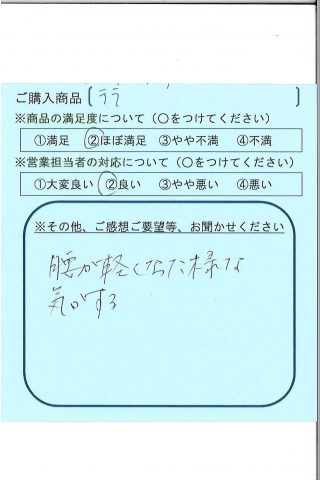 ご購入商品〔ララ 〕
※商品の満足度について（○をつけてください）
①満足 ②ほぼ満足 ③やや不満 ④不満
※営業担当者の対応について（○をつけてください）
①大変良い ②良い ③やや悪い ④悪い
※その他、ご感想ご要望等、お聞かせください
腰が軽くなった様な
気がする